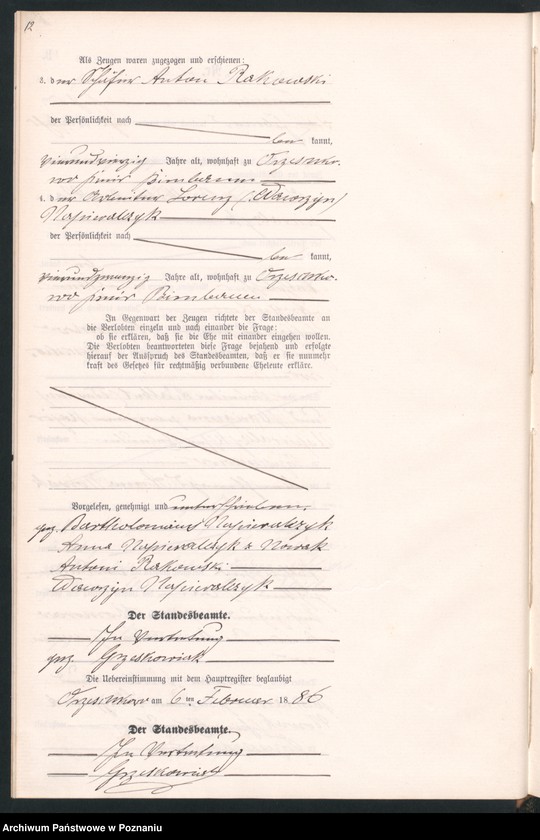 12
Als Zeugen waren zugezogen und erschienen:
3. der Schäfer Anton Rakowski
der Persönlichkeit nach
kannt,
Jahre alt, wohnhaft zu Orzeschko-
wo
4. der Lorenz /:Wawrzyn/
Napieralczyk
der Persönlichkeit nach
kannt,
vierundzwanzig Jahre alt, wohnhaft zu Orzeschko-
wo
In Gegenwart der Zeugen richtete der Standesbeamte an
die Verlobten einzeln und nach einander die Frage:
ob sie erklären, daß sie die Ehe mit einander eingehen wollen.
Die Verlobten beantworteten diese Frage bejahend und erfolgte
hierauf der Ausspruch des Standesbeamten, daß er sie nunmehr
kraft des Gesetzes für rechtmäßig verbundene Eheleute erkläre.
Vorgelesen, genehmigt und unterschrieben.
gez. Bartholomäus Napieralczyk
Anna Napieralczyk z Nowak
Antoni Rakowski
Wawrzyn Napieralczyk
Der Standesbeamte.
In Vertretung
gez. Grzeskowiak
Die Uebereinstimmung mit dem Hauptregister beglaubigt
Orzeschkowo am 6 ten Februar 1886
Der Standesbeamte.
In Vertretung
Grzeskowiak
Archiwum Państwowe w Poznaniu